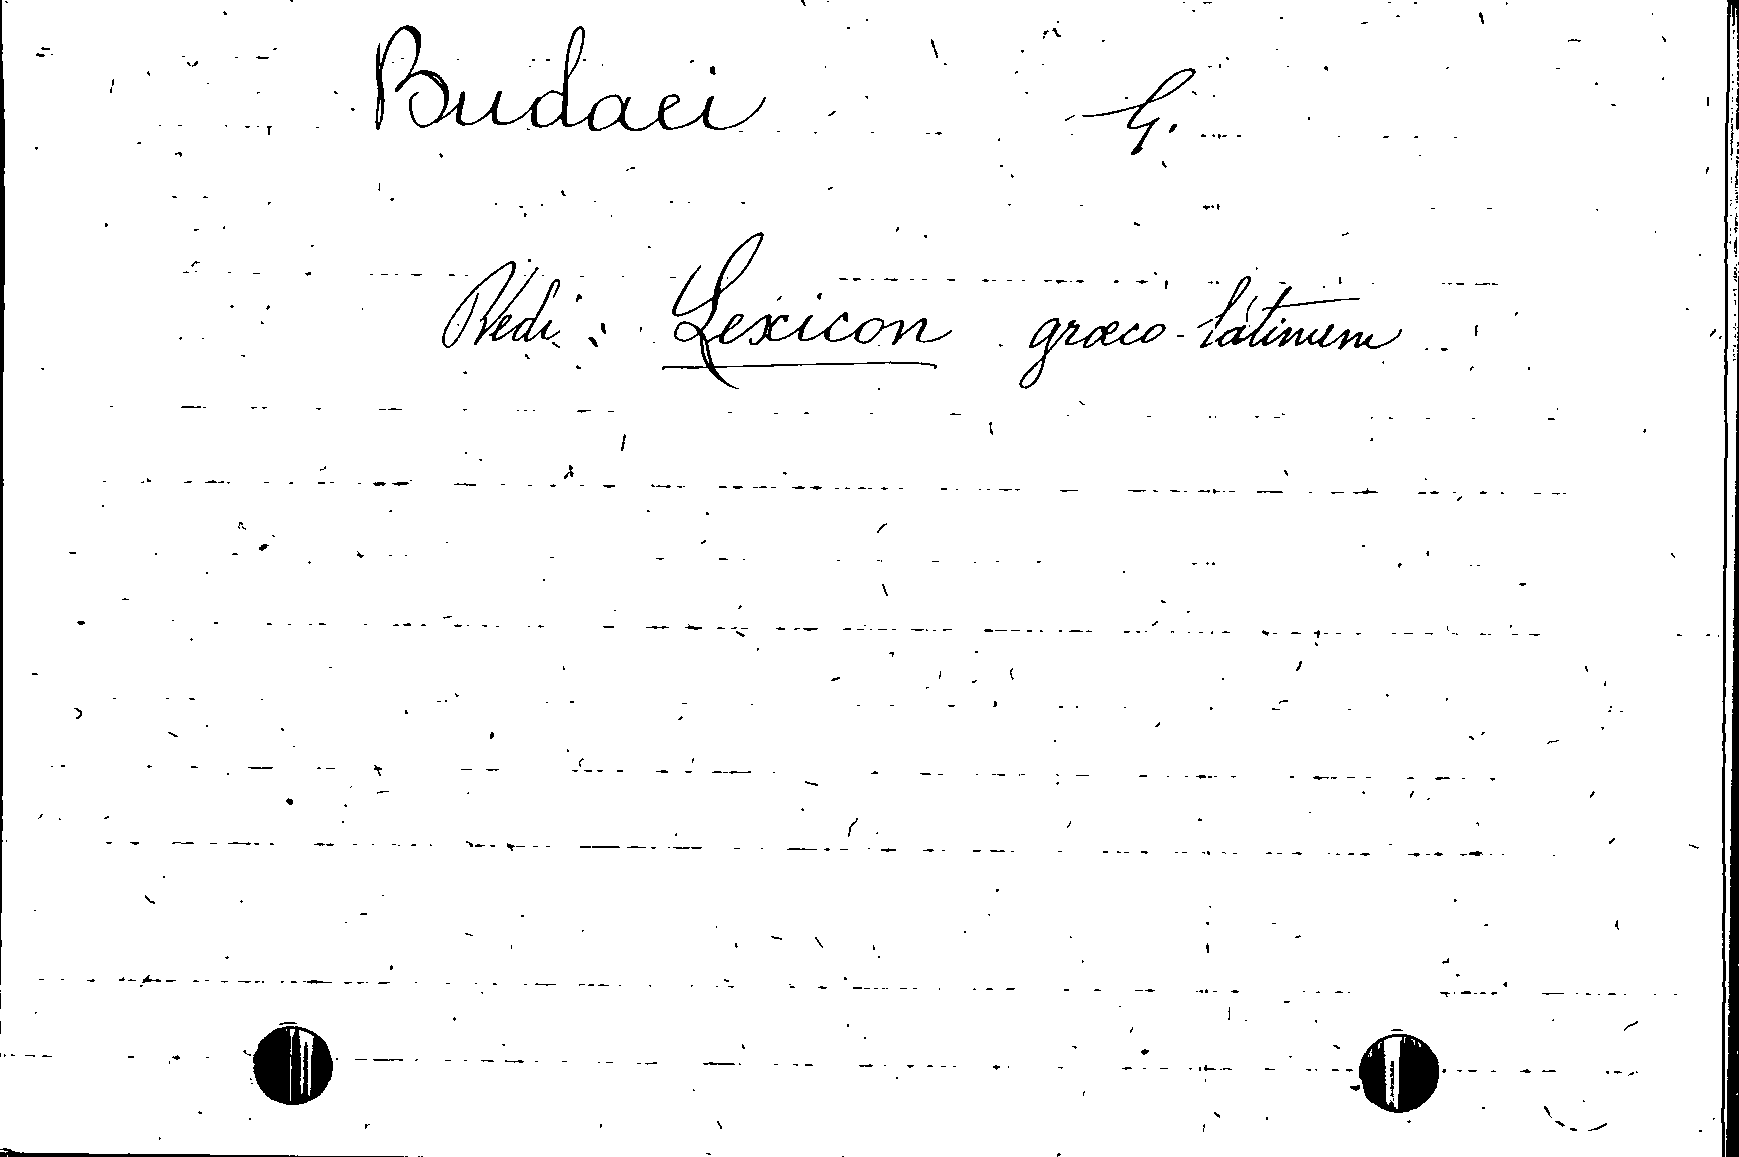 Budaei G.
Vedi: Lexicon graeco-latinum